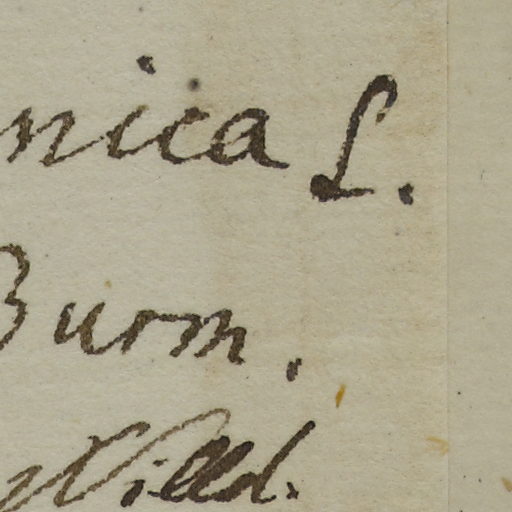 nica L.
Burm.
Willd.